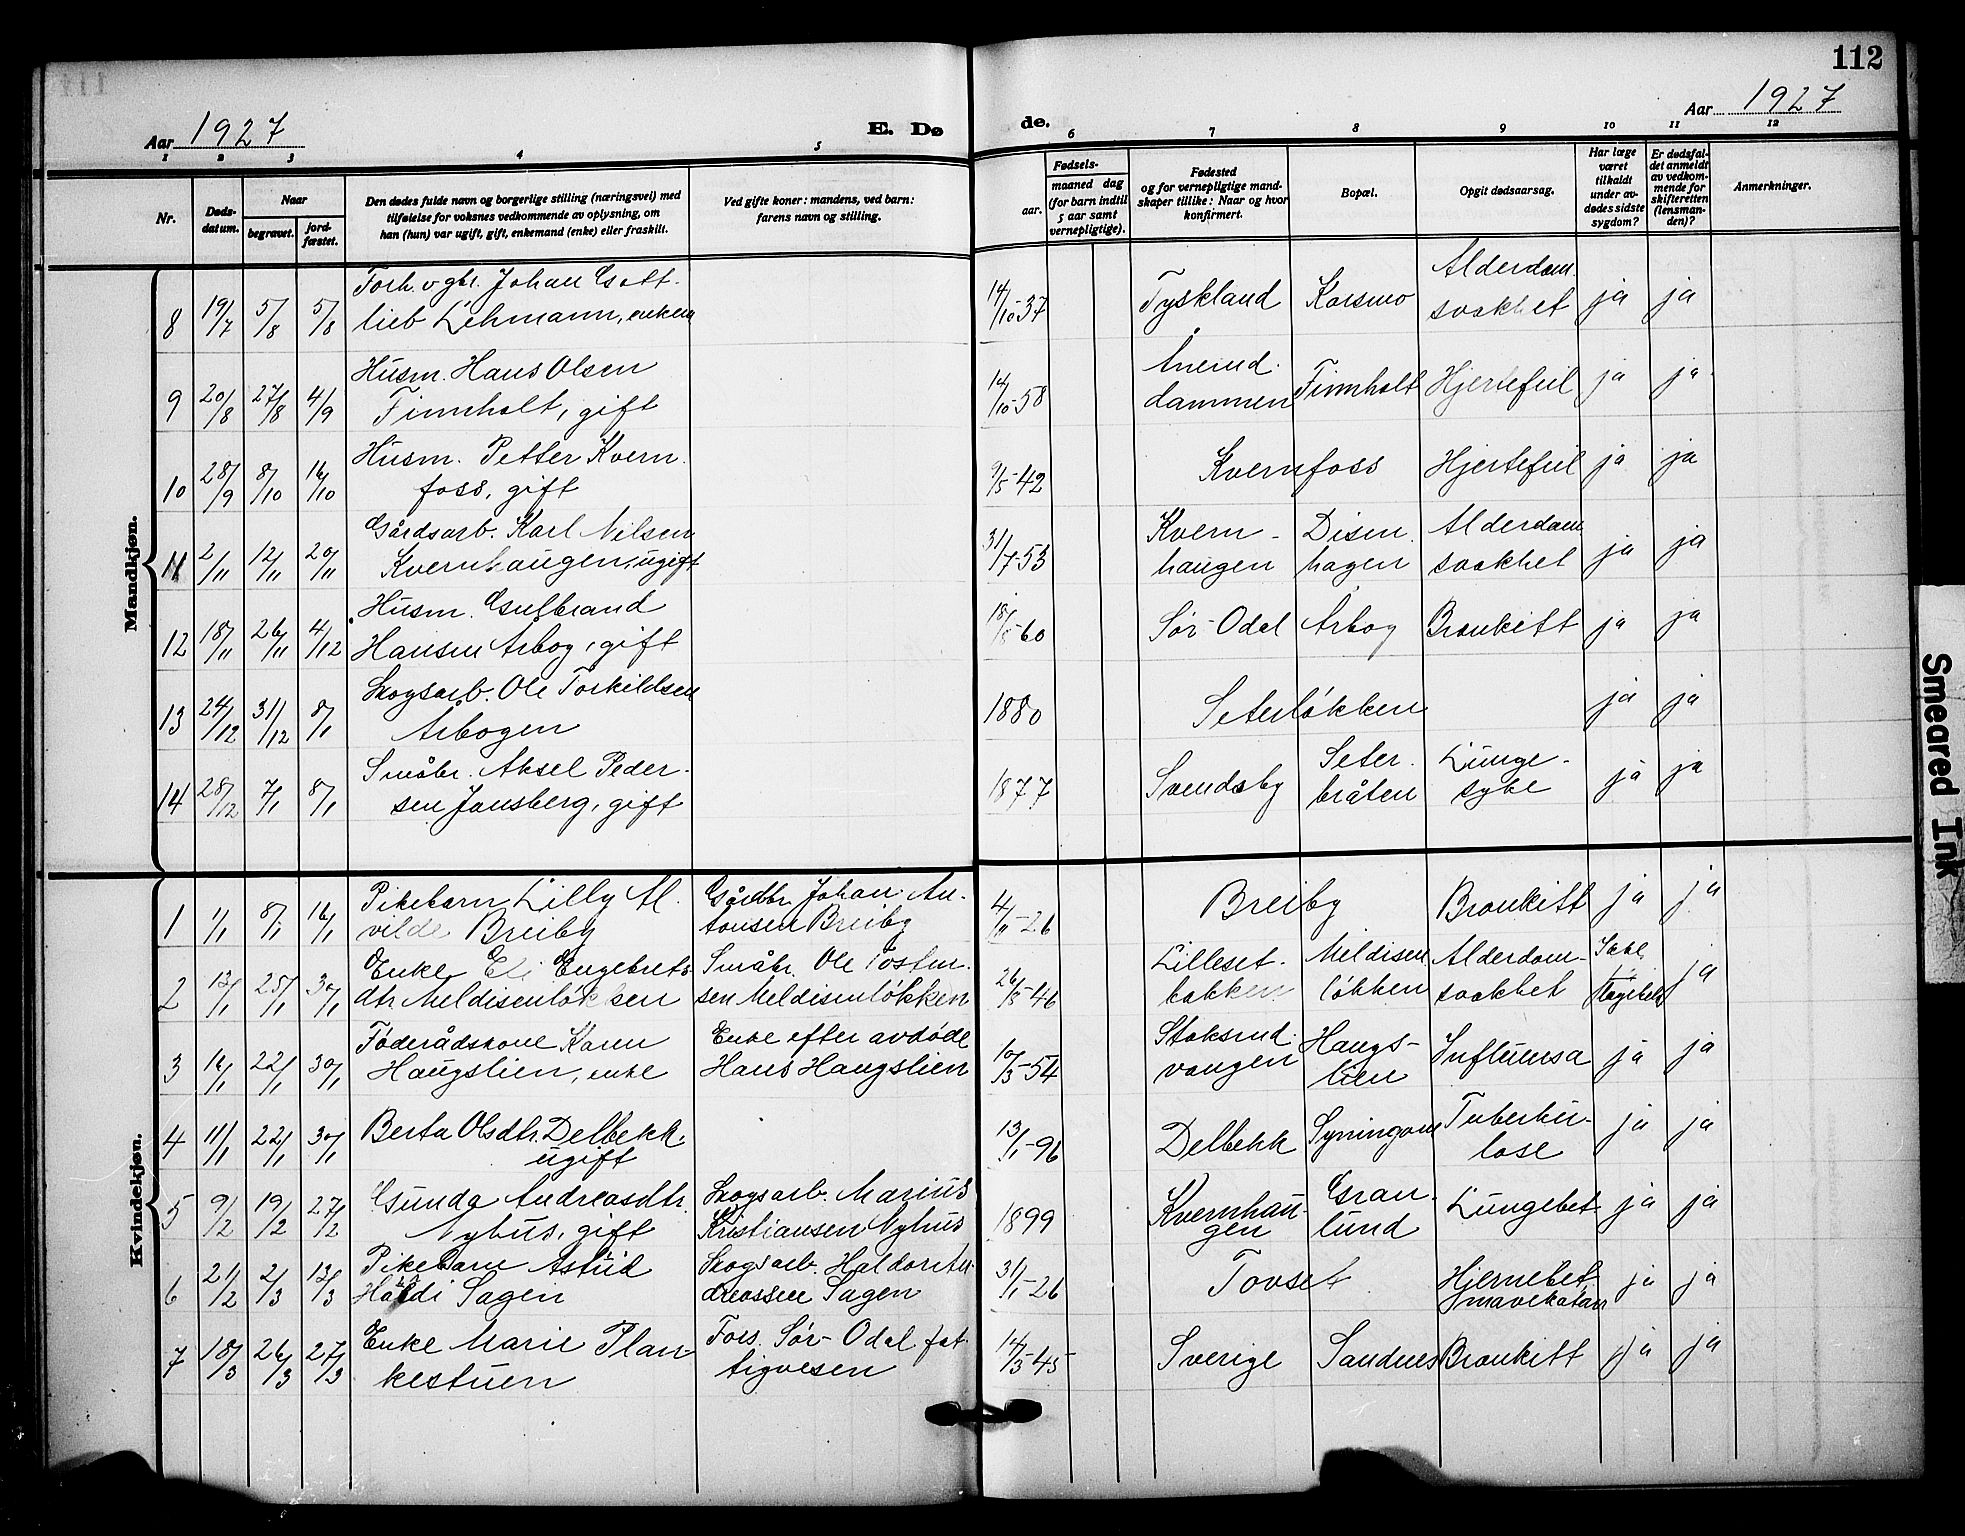 112
Aar 1927
E. Dø
de.
Aar 1927
1 2 3 4 5 6 7 8 9 10 11 12
Nr.
Døds-
datum.
Naar
begravet.
jord-
fæstet.
Den dødes fulde navn og borgerlige stilling (næringsvei) med
tilføielse for voksnes vedkommende av oplysning, om
han (hun) var ugift, gift, enkemand (enke) eller fraskilt.
Ved gifte koner: mandens, ved barn:
farens navn og stilling.
Fødsels-
aar.
maaned dag
(for barn indtil
5 aar samt
vernepligtige).
Fødested
og for vernepligtige mand-
skaper tillike: Naar og hvor
konfirmert.
Bopæl.
Opgit dødsaarsag.
Har læge
været
tilkaldt
under av-
dødes sidste
sygdom?
Er dødsfal-
det anmeldt
av vedkom-
mende for
skifteretten
(lensman-
den)?
Anmerkninger.
Mandkjøn.
8 19/7 5/8 5/8 Forh. v. gbr. Johan Gott-
lieb Lehmann, enkem
14/10-37 Tyskland Korsmo Alderdom-
svakhet ja ja
9 20/8 27/8 4/9 Husm. Hans Olsen
Finnholt, gift
14/10-58
dammen Finnholt Hjertefeil ja ja
10 28/9 8/10 16/10 Husm. Petter Kvern-
foss, gift
9/5-42 Kvernfoss Hjertefeil ja ja
11 2/11 12/11 20/11 Gårdsarb. Karl Nilsen
Kvernhaugen, ugift
31/7-53 Kvern-
haugen Disen-
hagen Alderdom
svakhet ja ja
12 18/11 26/11 4/12 Husm. Gulbrand
Hansen Årbog, gift
60 Sør-Odal Årbog Bronkitt ja ja
13 24/12 31/12 8/1 Skogsarb. Ole Torkildsen
Årbogen
1880 Seterløkken ja ja
14 28/12 7/1 8/1 Småbr. Aksel Peder-
sen Jonsberg, gift
1877 Svendsby Seter-
bråten Lunge-
syke ja ja
Kvindekjøn.
1 1/1 8/1 16/1 Pikebarn Lilly Al-
vilde Breiby
Gårdbr. Johan An-
tonsen Breiby
4/11-26 Breiby Bronkitt ja ja
2 12/1 25/1 30/1 Enke Eli Engebrets-
dtr. Meldisenløkken
Småbr. Ole Tosten-
sen Meldisenløkken
26/8-46 Lilleset-
bakken Meldisen
løkken Alderdom-
svakhet ja
3 16/1 22/1 30/1 Føderådskone Karen
Haugslien, enke
Enke efter avdøde
Hans Haugslien
10/3-54 Stoksrud-
vangen Haugs-
lien Influensa ja ja
4 11/1 22/1 30/1 Berta Olsdtr. Delbekk
ugift
13/1-96 Delbekk Tuberku-
lose ja ja
5 9/2 19/2 27/2 Gunda Andreasdtr.
Nyhus, gift
Skogsarb. Marius
Kristiansen Nyhus
1899 Kvernhau-
gen Gran-
lund Lungebet ja ja
6 21/2 2/3 13/3 Pikebarn Astrid
Sagen
Skogsarb. Haldor An-
dreassen Sagen
31/1-26 Tovset Hjernebet.
mavekatarr ja ja
7 18/3 26/3 27/3 Enke Marie Plan-
kestuen
Fors. Sør-Odal fat-
tigvesen
14/3-45 Sverige Sandnes Bronkitt ja ja
Smeared Ink